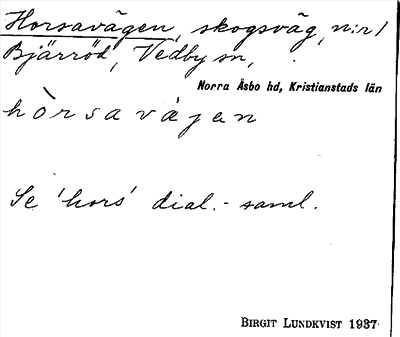 Horsavägen, skogsväg, n:r 1
Bjärröd, Vedby sn,
Norra Åsbo hd, Kristianstads län
hòrsavàjen
Se 'hors' dial.-saml.
BIRGIT LUNDKVIST 1937